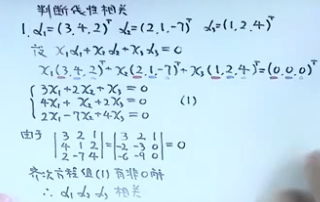 判断线性相关
1. α₁=(3,4,2)ᵀ α₂=(2,1,-7)ᵀ α₃=(1,2,4)ᵀ
设 x₁α₁+x₂α₂+x₃α₃=0
x₁(3,4,2)ᵀ+x₂(2,1,-7)ᵀ+x₃(1,2,4)ᵀ=(0,0,0)ᵀ
3x₁+2x₂+x₃=0
4x₁+x₂+2x₃=0 (1)
2x₁-7x₂+4x₃=0
由于 |3 2 1| = |3 2 1| =0
|4 1 2| |-2 -3 0|
|2 -7 4| |-6 -9 0|
齐次方程组(1)有非0解
∴ α₁ α₂ α₃ 相关